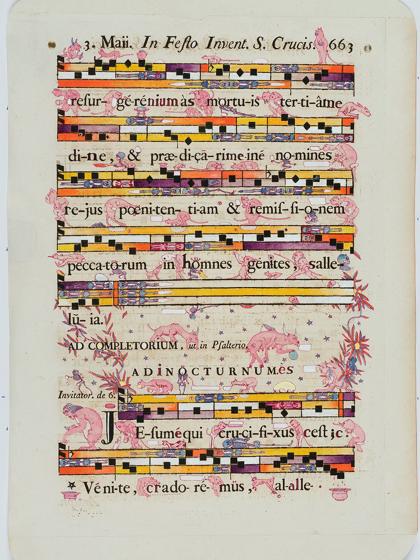 3. Maii. In Festo Invent. S. Crucis. 663
resur- gérénium às mortu-is ter-ti-âme
di-ne, & præ-di-çà-rime iné no-mines
re-jus pœni-ten- ti-am & remis-si-o-nem
pecca-to-rum in hômnes génites salle-
lù- ia.
AD COMPLETORIUM, ut in Psalterio,
AD INOCTURNUM.es
Invitator. de 6.
JE-sumé qui cru-ci-fi-xus cest ic.
* Vé ni-te, crado-re- mùs, al-alle-